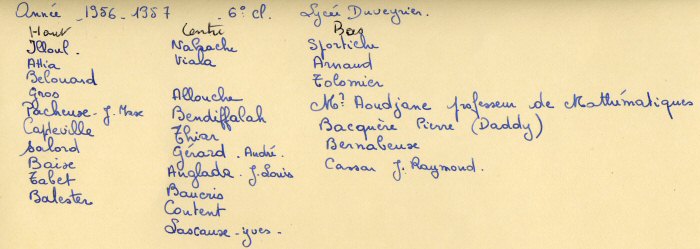 Année 1956-1957 6e cl. Lycée Duveyrier.
Haut
Illoul.
Attia
Belouard
Gros
Pacheuse-J. Marc
Capdeville
Salord
Baise
Tabet
Balester
Centre
Nalpache
Viala
Allouche
Bendiffalah
Thiar
Gérard. André.
Anglada. J. Louis
Baucris
Content
Lascause-yves-
Bas
Sportiche
Arnaud
Tolomier
Mr. Aoudjane professeur de Mathématiques
Bacquère Pierre (Daddy)
Bernabeuse
Cassar J. Raymond.